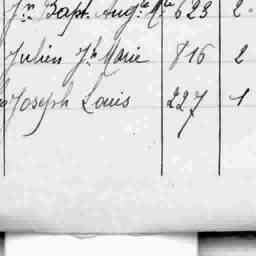 Jn Bapt. Augte Me 623 2
Julien Jh Marie 816 2
Joseph Louis 227 1